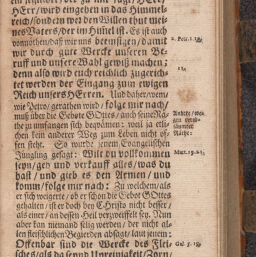 HErr/ wird eingehen in das Himmel-
reich/ sondern wer den Willen thut mei-
nes Vaters/ der im Himel ist. Es ist auch
vonnöthen/ daß wir uns beenstigen/ damit
wir durch gute Wercke unseren Be-
ruff und unsere Wahl gewiß machen;
denn also wird euch reichlich zugerich-
tet werden der Eingang zum ewigen
Reich unsers HErren. Und daher/ wem
wie Petro/ gerathen wird/ folge mir nach/
muß über die Gebote GOttes/ auch seine Rä-
the zu umfangen sich bequämen: weil ja etli-
chen kein anderer Weg zum Leben nicht of-
fen stehe. So wurde jenem Evangelischen
Jüngling gesagt: Wilt du vollkommen
seyn/ gen und verkauff alles/ was du
hast/ und gieb es den Armen/ und
komm/ folge mir nach: Zu welchem/ als
er sich weigerte/ ob er schon die Gebot GOttes
gehalten/ ist er doch bey Christo nicht besser/
als einer/ an dessen Heil verzweiffelt sey. Nun
aber kan niemand selig werden/ der nicht al-
len fleischlichen Begierden absaget/ laut jenem:
Offenbar sind die Wercke des Flei-
sches/ als da seynd Unreinigkeit/ Zorn/
2. Petr. 1. 10.
11.
Räthe:
Matt. 19. 21.
Gal. 5. 19.